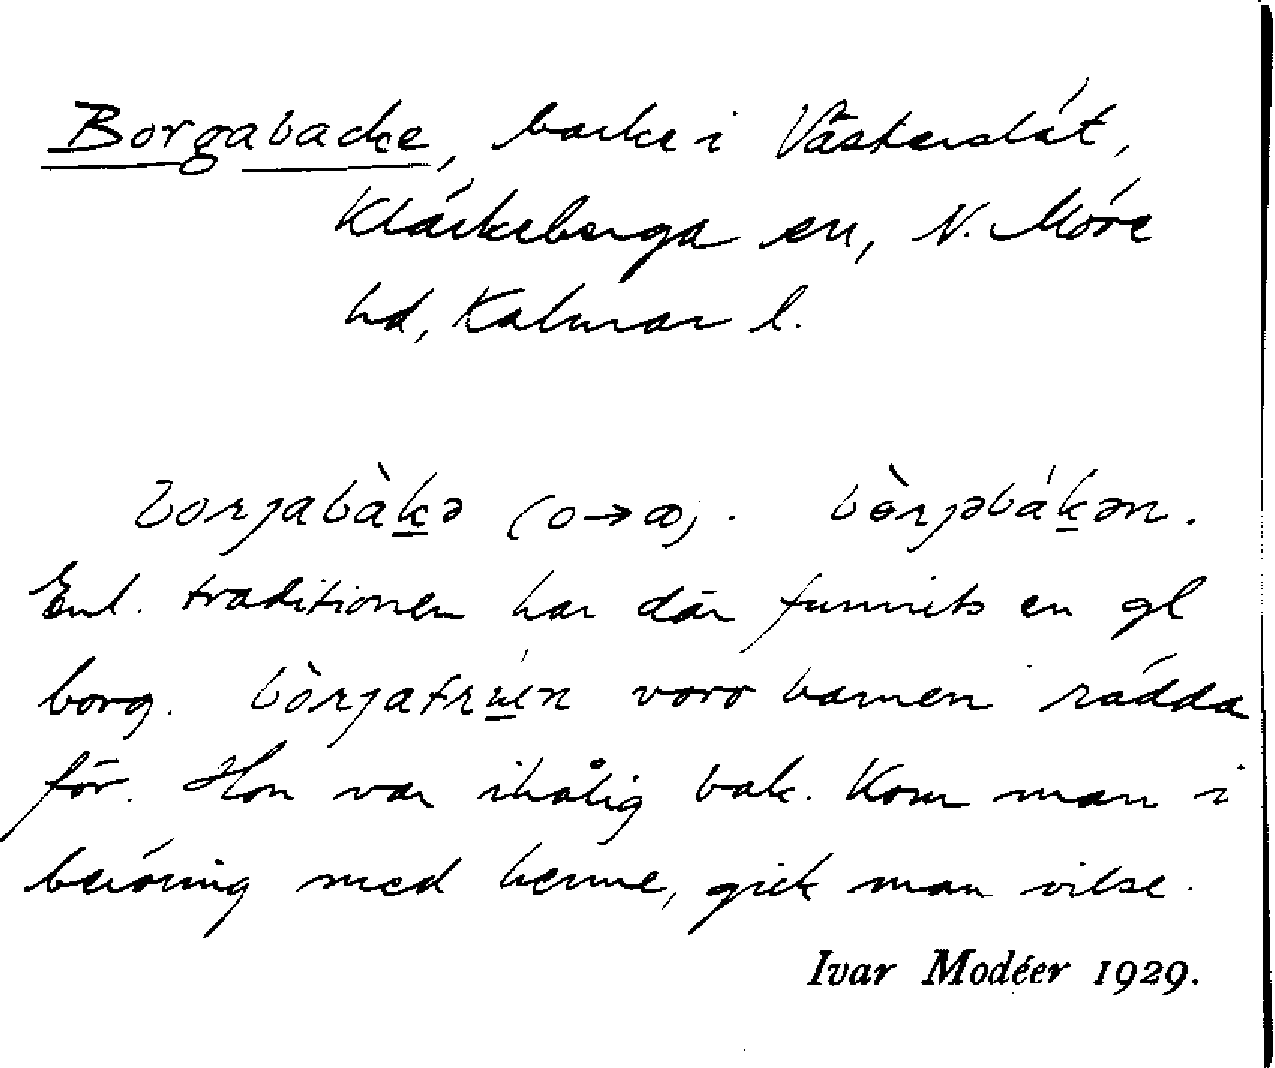 Borgabacke, backe i Västerslät,
Kläckeberga sn, N. Möre
hd, Kalmar l.
borjabàkə (o→ꝏ). bòrjəbákən.
Enl. traditionen har där funnits en gl
borg. bòrjafrúen voro barnen rädda
för. Hon var ihålig bak. Kom man i
beröring med henne, gick man vilse.
Ivar Modéer 1929.